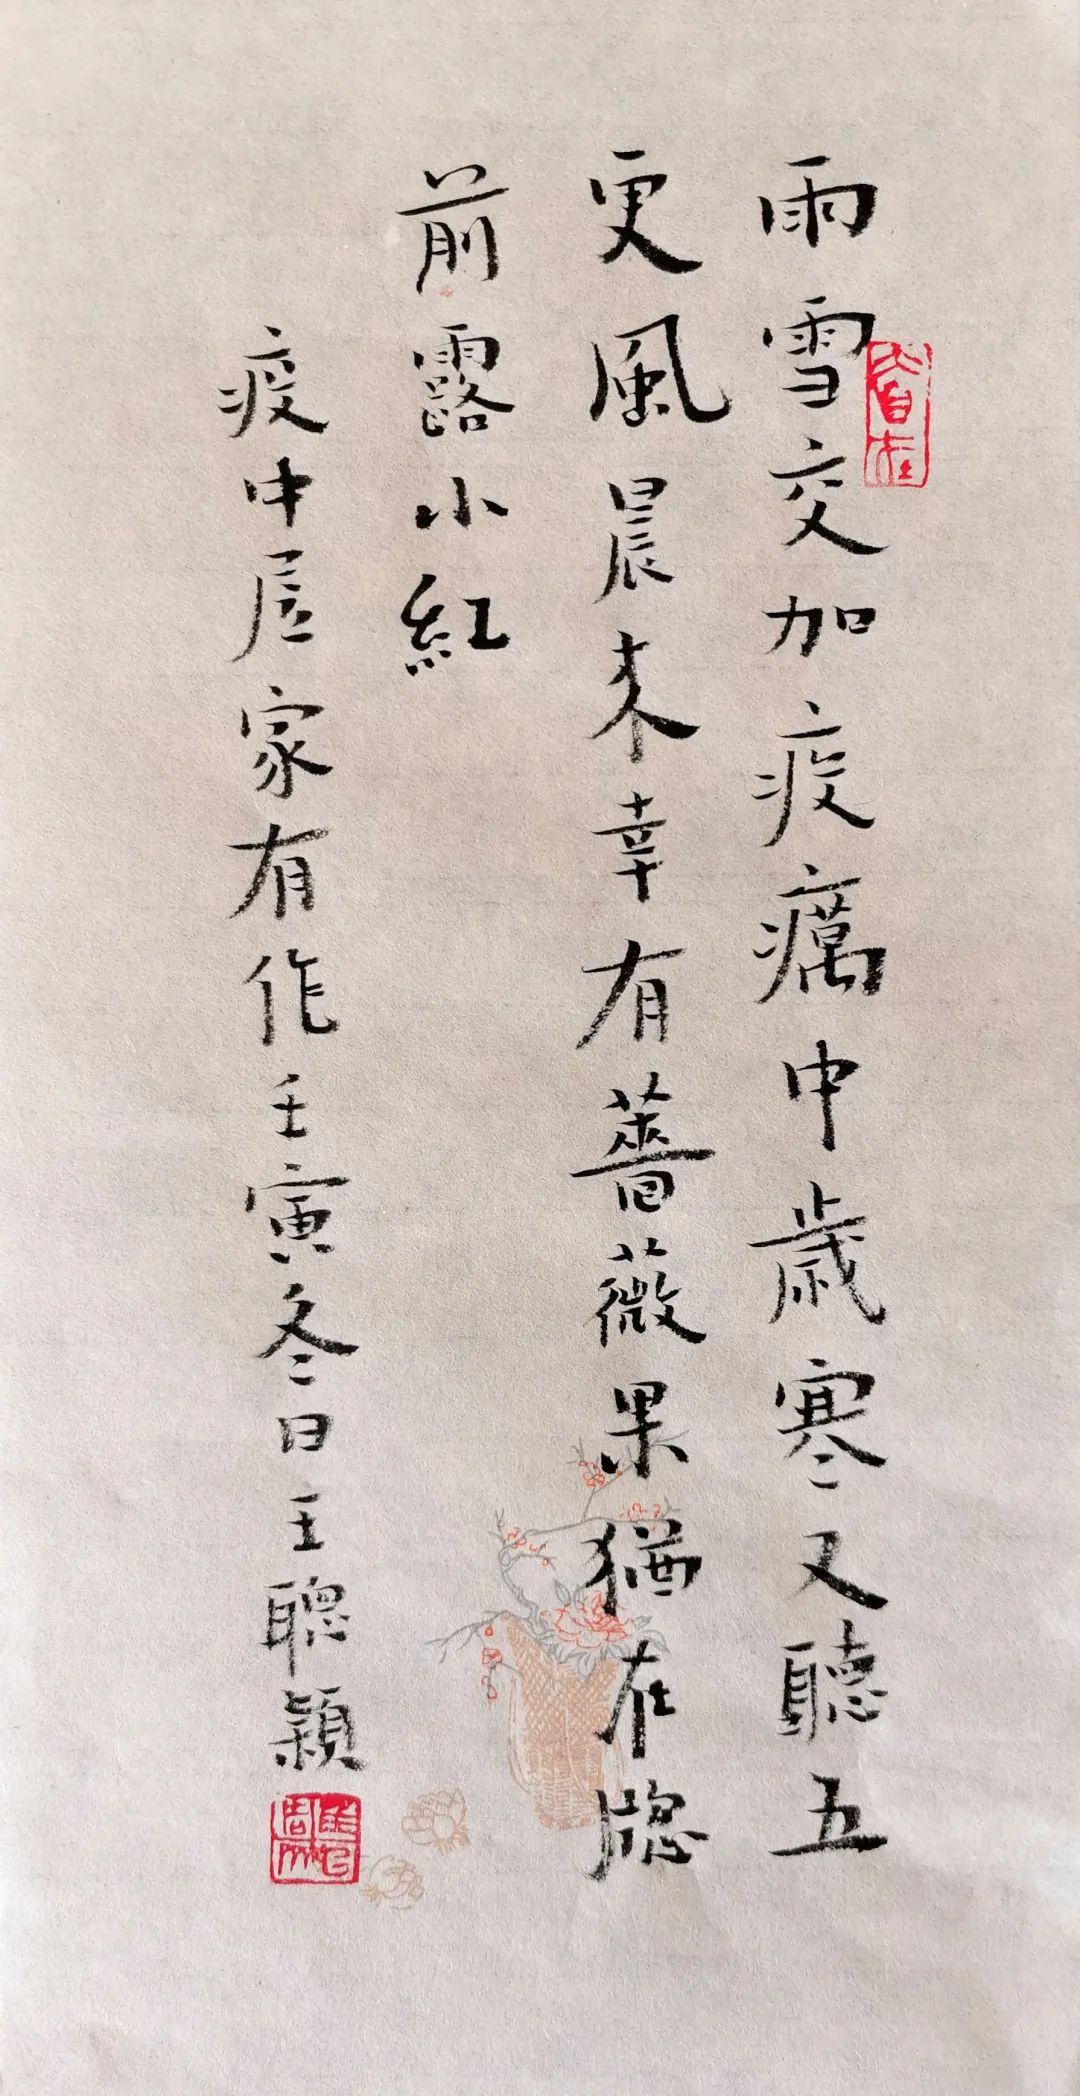 雨雪交加疫癘中歲寒又聽五
更風晨來幸有薔薇果猶在牕
前露小紅
疫中居家有作壬寅冬日王聰穎